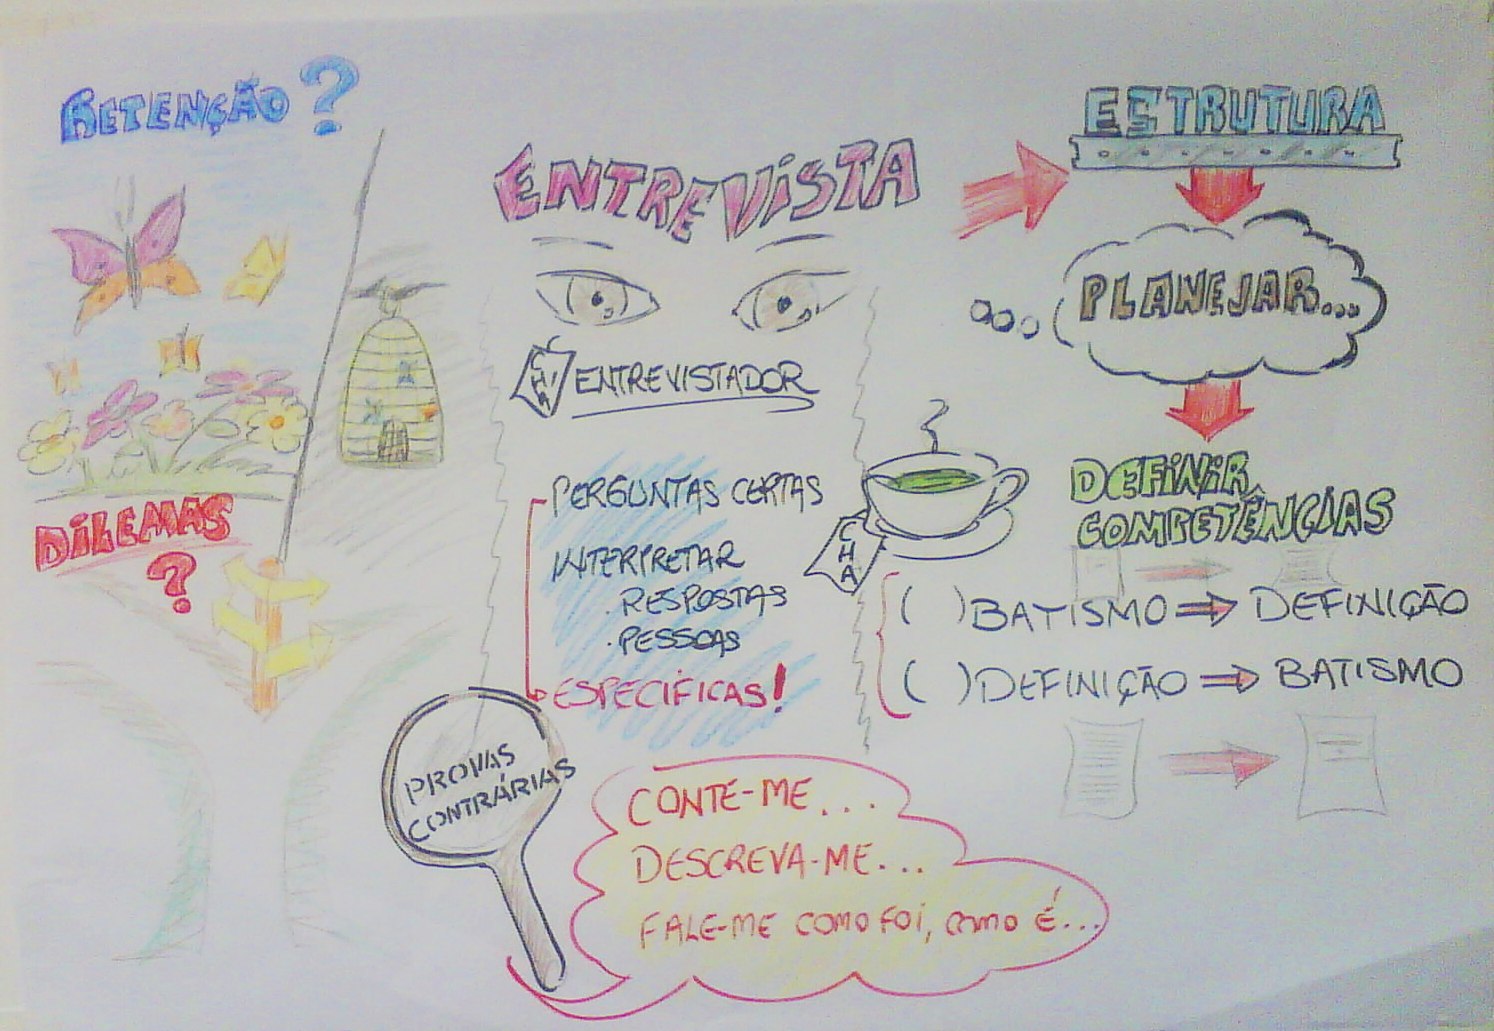 RETENÇÃO?
DILEMAS
?
ENTREVISTA
CHA
ENTREVISTADOR
PERGUNTAS CERTAS
INTERPRETAR
. RESPOSTAS
. PESSOAS
ESPECÍFICAS!
PROVAS
CONTRÁRIAS
CONTE-ME...
DESCREVA-ME...
FALE-ME COMO FOI, COMO É...
ESTRUTURA
PLANEJAR...
DEFINIR
COMPETÊNCIAS
CHA
( ) BATISMO ⇒ DEFINIÇÃO
( ) DEFINIÇÃO ⇒ BATISMO